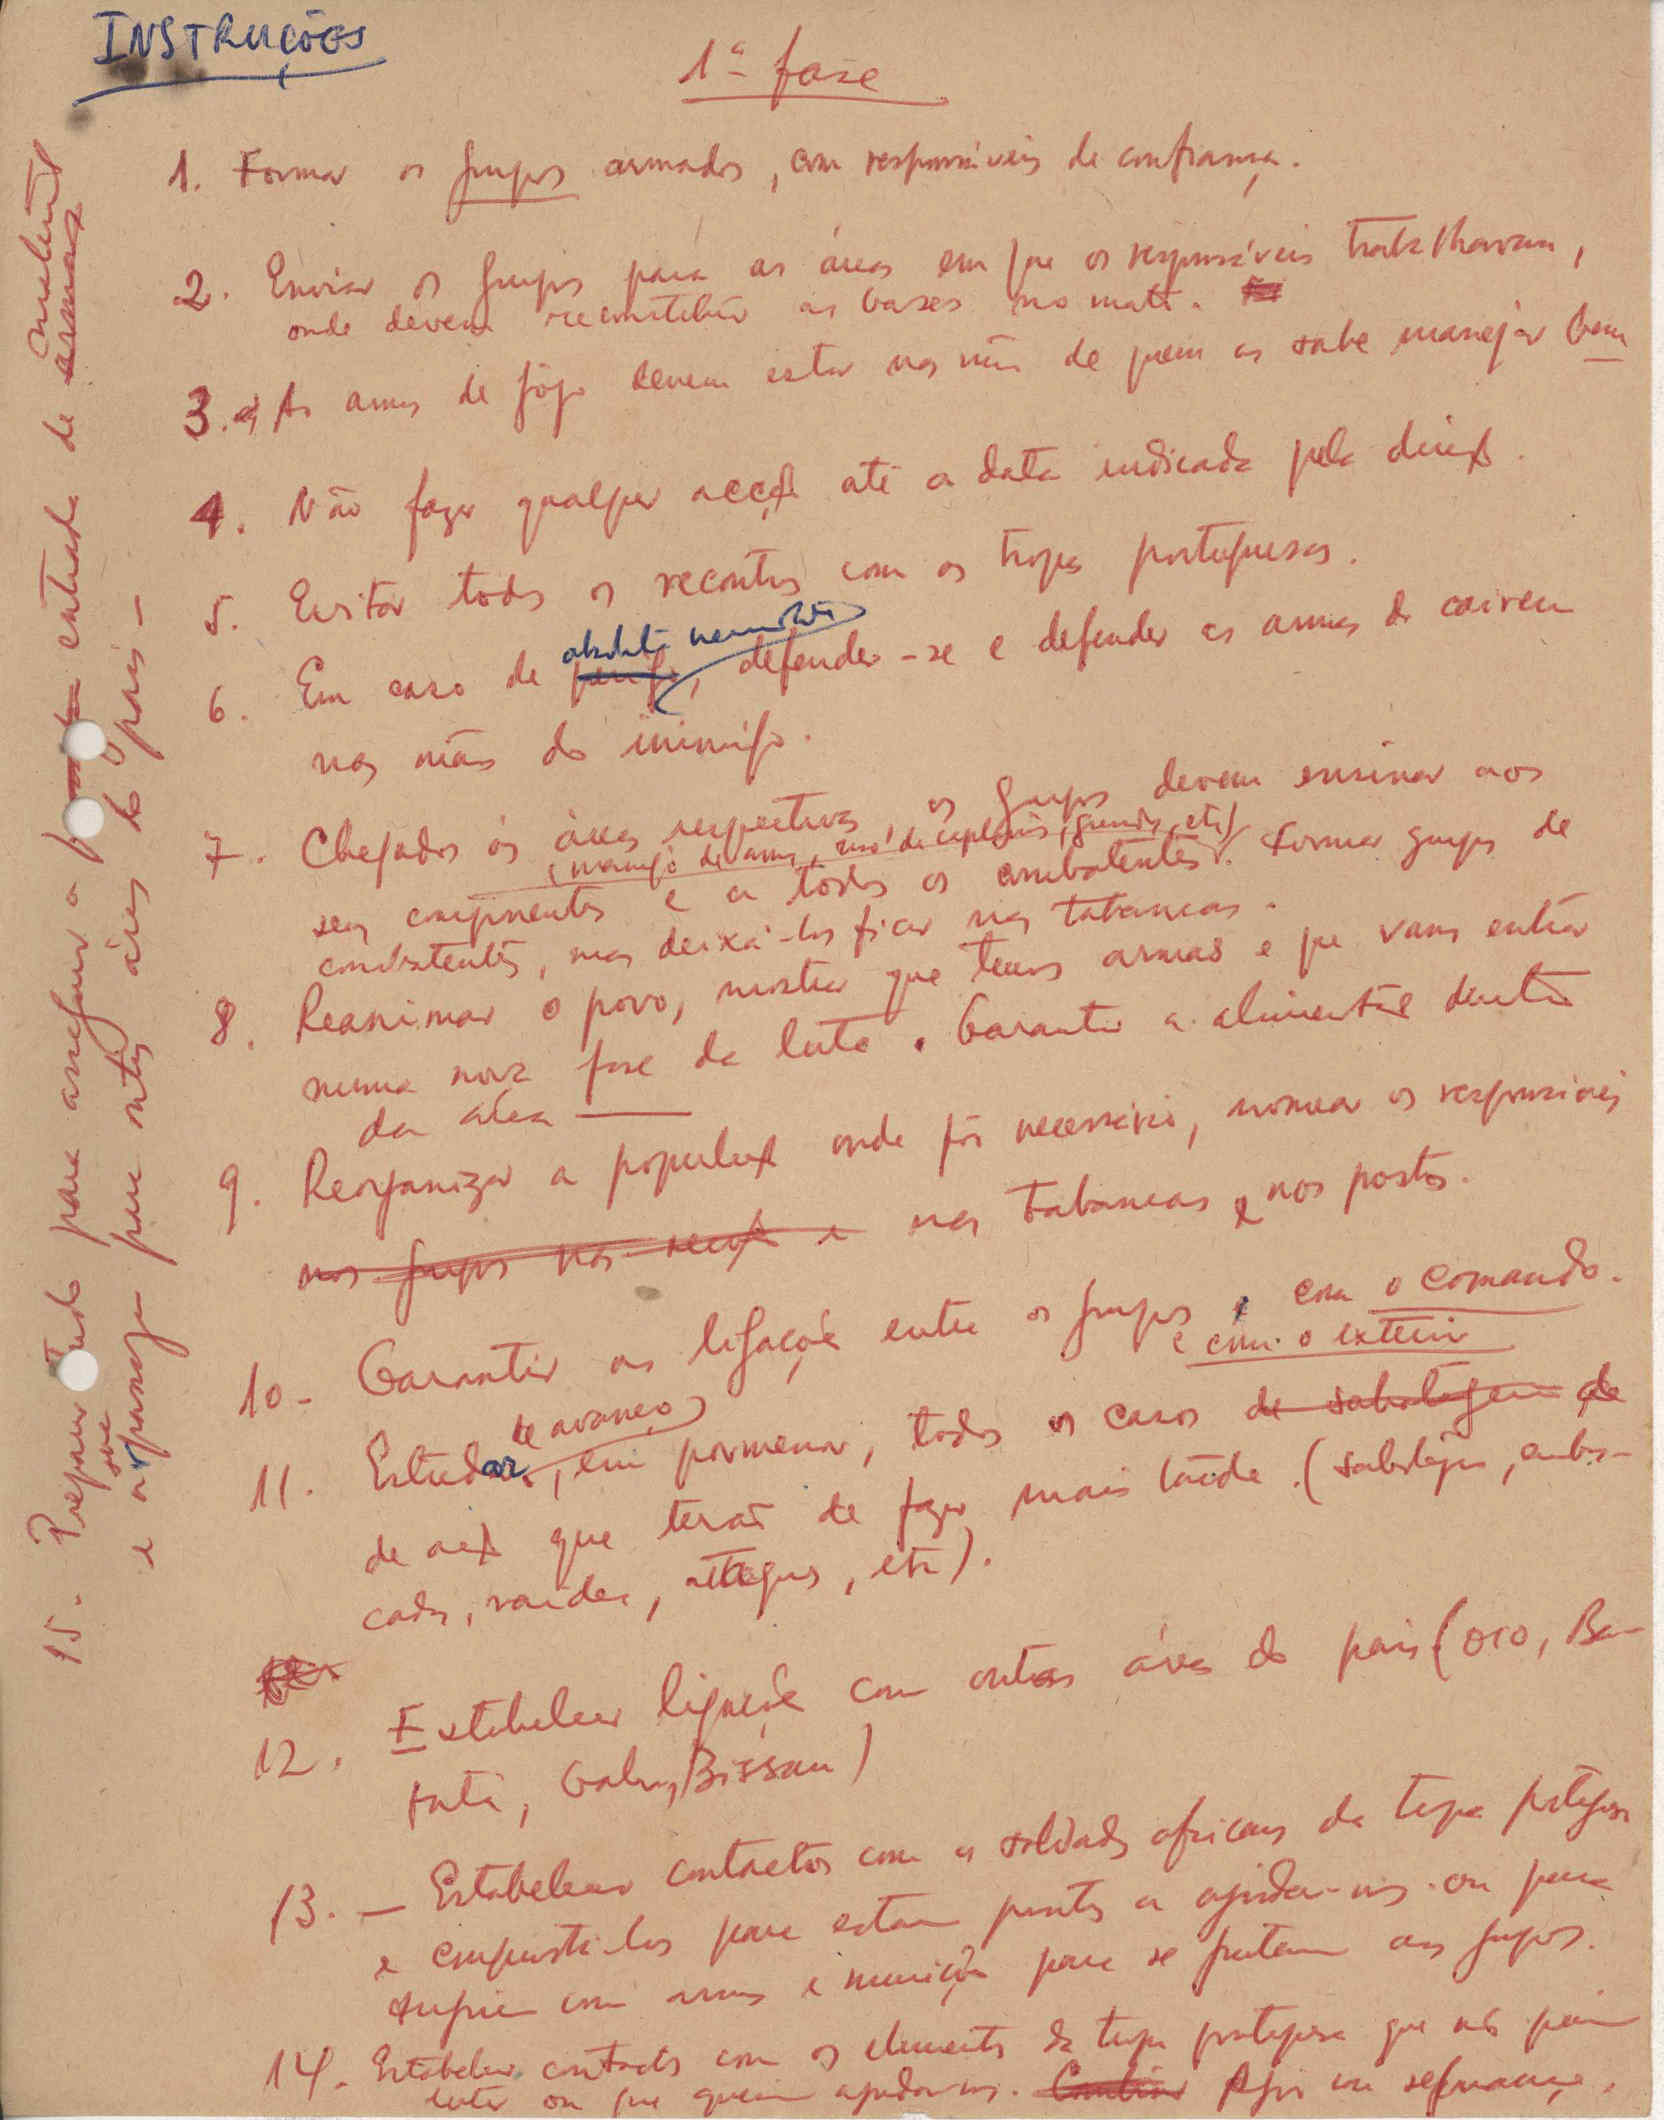 INSTRUÇÕES
1ª fase
1. Formar os grupos armados, com responsáveis de confiança.
2. Enviar os grupos para as áreas em que os responsáveis trabalhavam,
onde devem reconstituir as bases no mato.
3. As armas de fôgo devem estar nas mãos de quem as sabe manejar bem
4. Não fazer qualquer acção até a data indicada pela direcção.
5. Evitar todos os recontros com as tropas portuguesas.
absoluta necessidade
6. Em caso de perigo, defender-se e defender as armas de cairem
nas mãos do inimigo.
7. Chegados às áreas respectivas, os grupos devem ensinar aos
(manejo de armas, uso de explosivos, granadas, etc)
seus componentes e a todos os combatentes. Formar grupos de
combatentes, mas deixá-los ficar nas tabancas.
8. Reanimar o povo, mostrar que temos armas e que vamos entrar
numa nova fase da luta. Garantir a alimentação dentro
da área
9. Reorganizar a população onde fôr necessário, nomear os responsáveis
nos grupos nas secções e nas tabancas e nos postos.
10- Garantir as ligações entre os grupos e com o comando.
e com o exterior
de avanço
11. Estudar, em pormenor, todos os casos de sabotagem de
de acção que terão de fazer mais tarde (sabotagens, embos-
cadas, raides, ataques, etc).
12. Estabelecer ligação com outras áreas do país (OIO, Ba-
fatá, Gabu, Bissau)
13. - Estabelecer contactos com os soldados africanos da tropa portuguesa
e conquistá-los para estarem prontos a ajudar-nos ou para
fugirem com armas e munições para se juntarem aos grupos.
14. Estabelecer contactos com os elementos da tropa portuguesa que não querem
lutar ou que querem ajudar-nos. Combinar Agir em segurança.
15. Preparar tudo para assegurar a entrada de armas material
e a sua passagem para outras áreas do país -